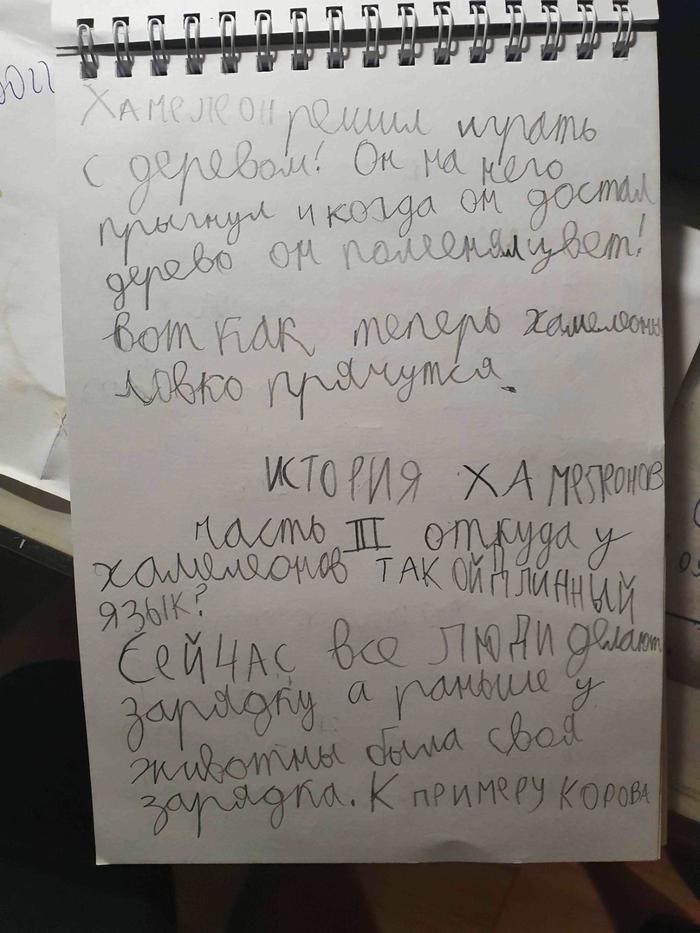 Хамелеон решил играть
с деревом! Он на него
прыгнул и когда он достал
дерево он поменял цвет!
вот как теперь хамелеоны
ловко прячутся.
ИСТОРИЯ ХАМЕЛЕОНОВ
часть III откуда у
хамелеонов ТАКОЙ ДЛИННЫЙ
ЯЗЫК?
СЕЙЧАС все ЛЮДИ делают
зарядку а раньше у
животны была своя
зарядка. К ПРИМЕРУ КОРОВА